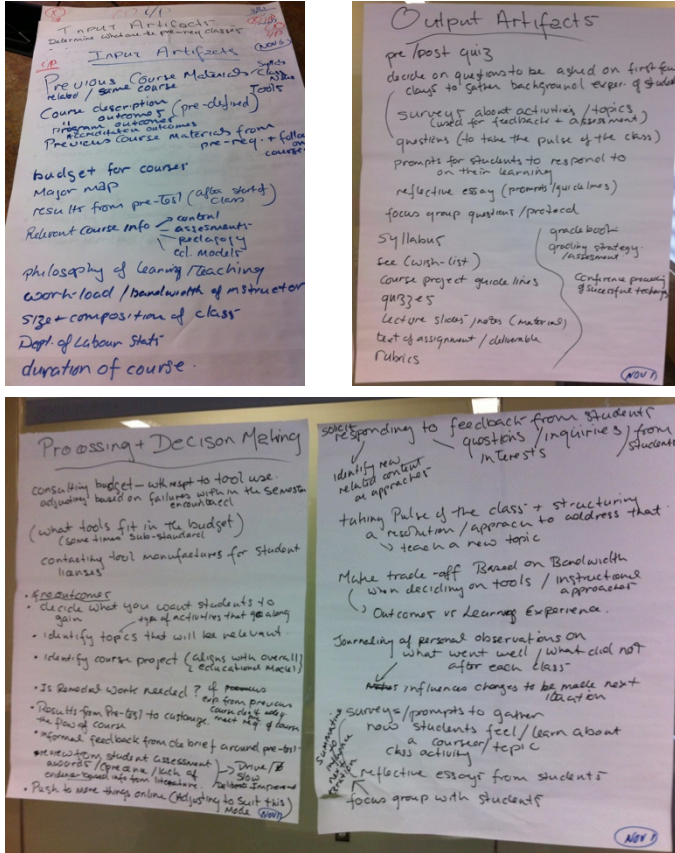 Input Artifacts
Determine what are the pre-req classes
Input Artifacts
Previous Course Materials
related / same course
Tools
Course description
" outcomes (pre-defined)
program outcomes
accreditation outcomes
Previous Course Materials from
pre-req. + follow on
courses
budget for courses
Major map
results from pre-test (after start of
class)
Relevant Course Info
content
assessments
pedagogy
ed. models
philosophy of learning / teaching
work-load / bandwidth of instructor
Size + composition of class
Dept. of Labour Stats
duration of course
Output Artifacts
pre/post quiz
decide on questions to be asked on first few
days to gather background exper. of students
surveys about activities / topics
(used for feedback + assessment)
questions (to take the pulse of the class)
prompts for students to respond to
on their learning
reflective essay (prompts/guidelines)
focus group questions / protocol
Syllabus
see (wish-list)
Course project guidelines
quizzes
Lecture slides / notes (materials)
text of assignment / deliverable
rubrics
gradebook
grading strategy
/assessment
Conference proceeding
of successful techniques
NOV 1
Processing + Decison Making
consulting budget – with respt to tool use.
adjusting based on failures within the semester
encountered
(what tools fit in the budget)
(sometimes sub-standard)
contacting tool manufactures for student
licenses
decide what you want students to
gain
type of activities that go along
• identify topics that will be relevant.
• Identify course project (aligns with overall
educational model)
• Is Remedial work needed? if
exp from previous
course don't
meet req of course
• Results from Pre-test to customize
the flow of course
• informal feedback from debrief around pre-test
review from student assessment
Drive /
Slow
• Push to more things online (Adjusting to suit this
Mode
NOV 1
solicit
responding to feedback from students
questions / inquiries / from
students
interests
identify new
related content
or approaches
taking Pulse of the class + structuring
a resolution / approach to address that
teach a new topic
Make trade-off Based on Bandwidth
when deciding on tools / instructional
approaches
Outcomes vs Learning Experience.
Journaling of personal observations on
what went well / what did not
after each class
influences changes to be made next
iteration
surveys/prompts to gather
how students feel / learn about
a course or / topic
class activity
Summative
to
influence
next
iteration
reflective essays from students
focus group with students
NOV 1